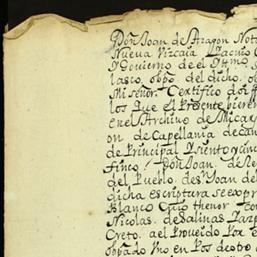 Don Joan de Aragon Not
Nueva Vizcaia
y Govierno de el Yllmo
lasco, obpo del dicho. ob
Mi señor. Certifico doi
los que el presente vieren
en el Archivo de Mi car
on de Capellania de can
de Principal y siento y cinc
Finco: Don Joan de
del Pueblo. de Sn Joan de
dicha escriptura se expr
Blanco Cuio thenor
Nicolas. de Salinas
creto. a el Proveido Por e
obpado Uno en Pos de otro